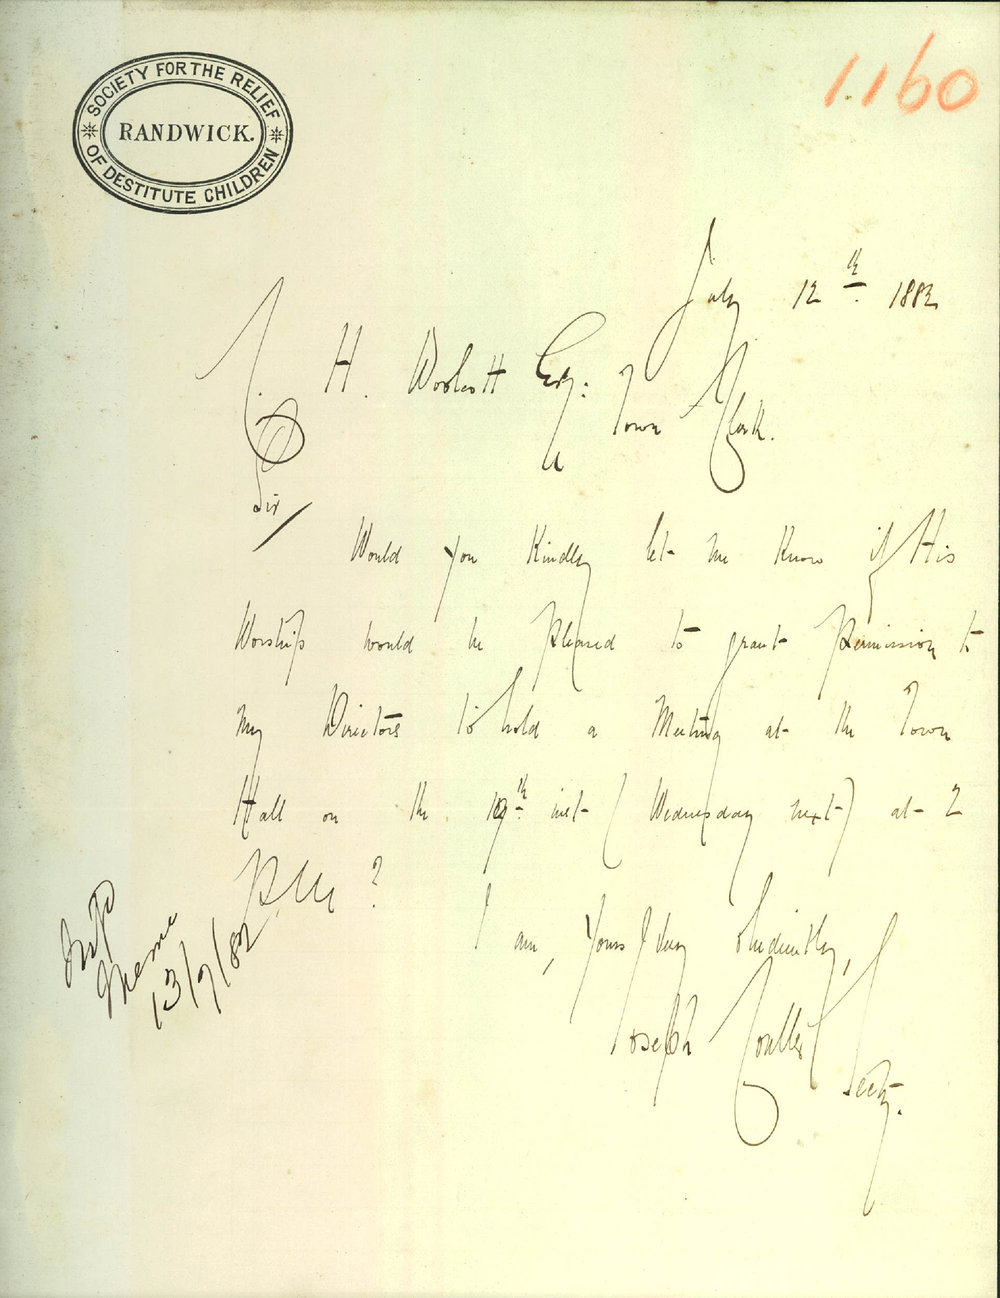 1.160
SOCIETY FOR THE RELIEF
OF DESTITUTE CHILDREN
RANDWICK.
July 12th 1882
C. H. Woolcott Esq: Town Clerk.
Sir
Would you Kindly let me Know if His
Worship would be pleased to grant permission to
my Directors to hold a Meeting at the Town
Hall on the 19th inst (Wednesday next) at 2
P.M. ?
I am, Yours Very obediently,
Joseph Coulter
Secty.
Memo
13/7/82